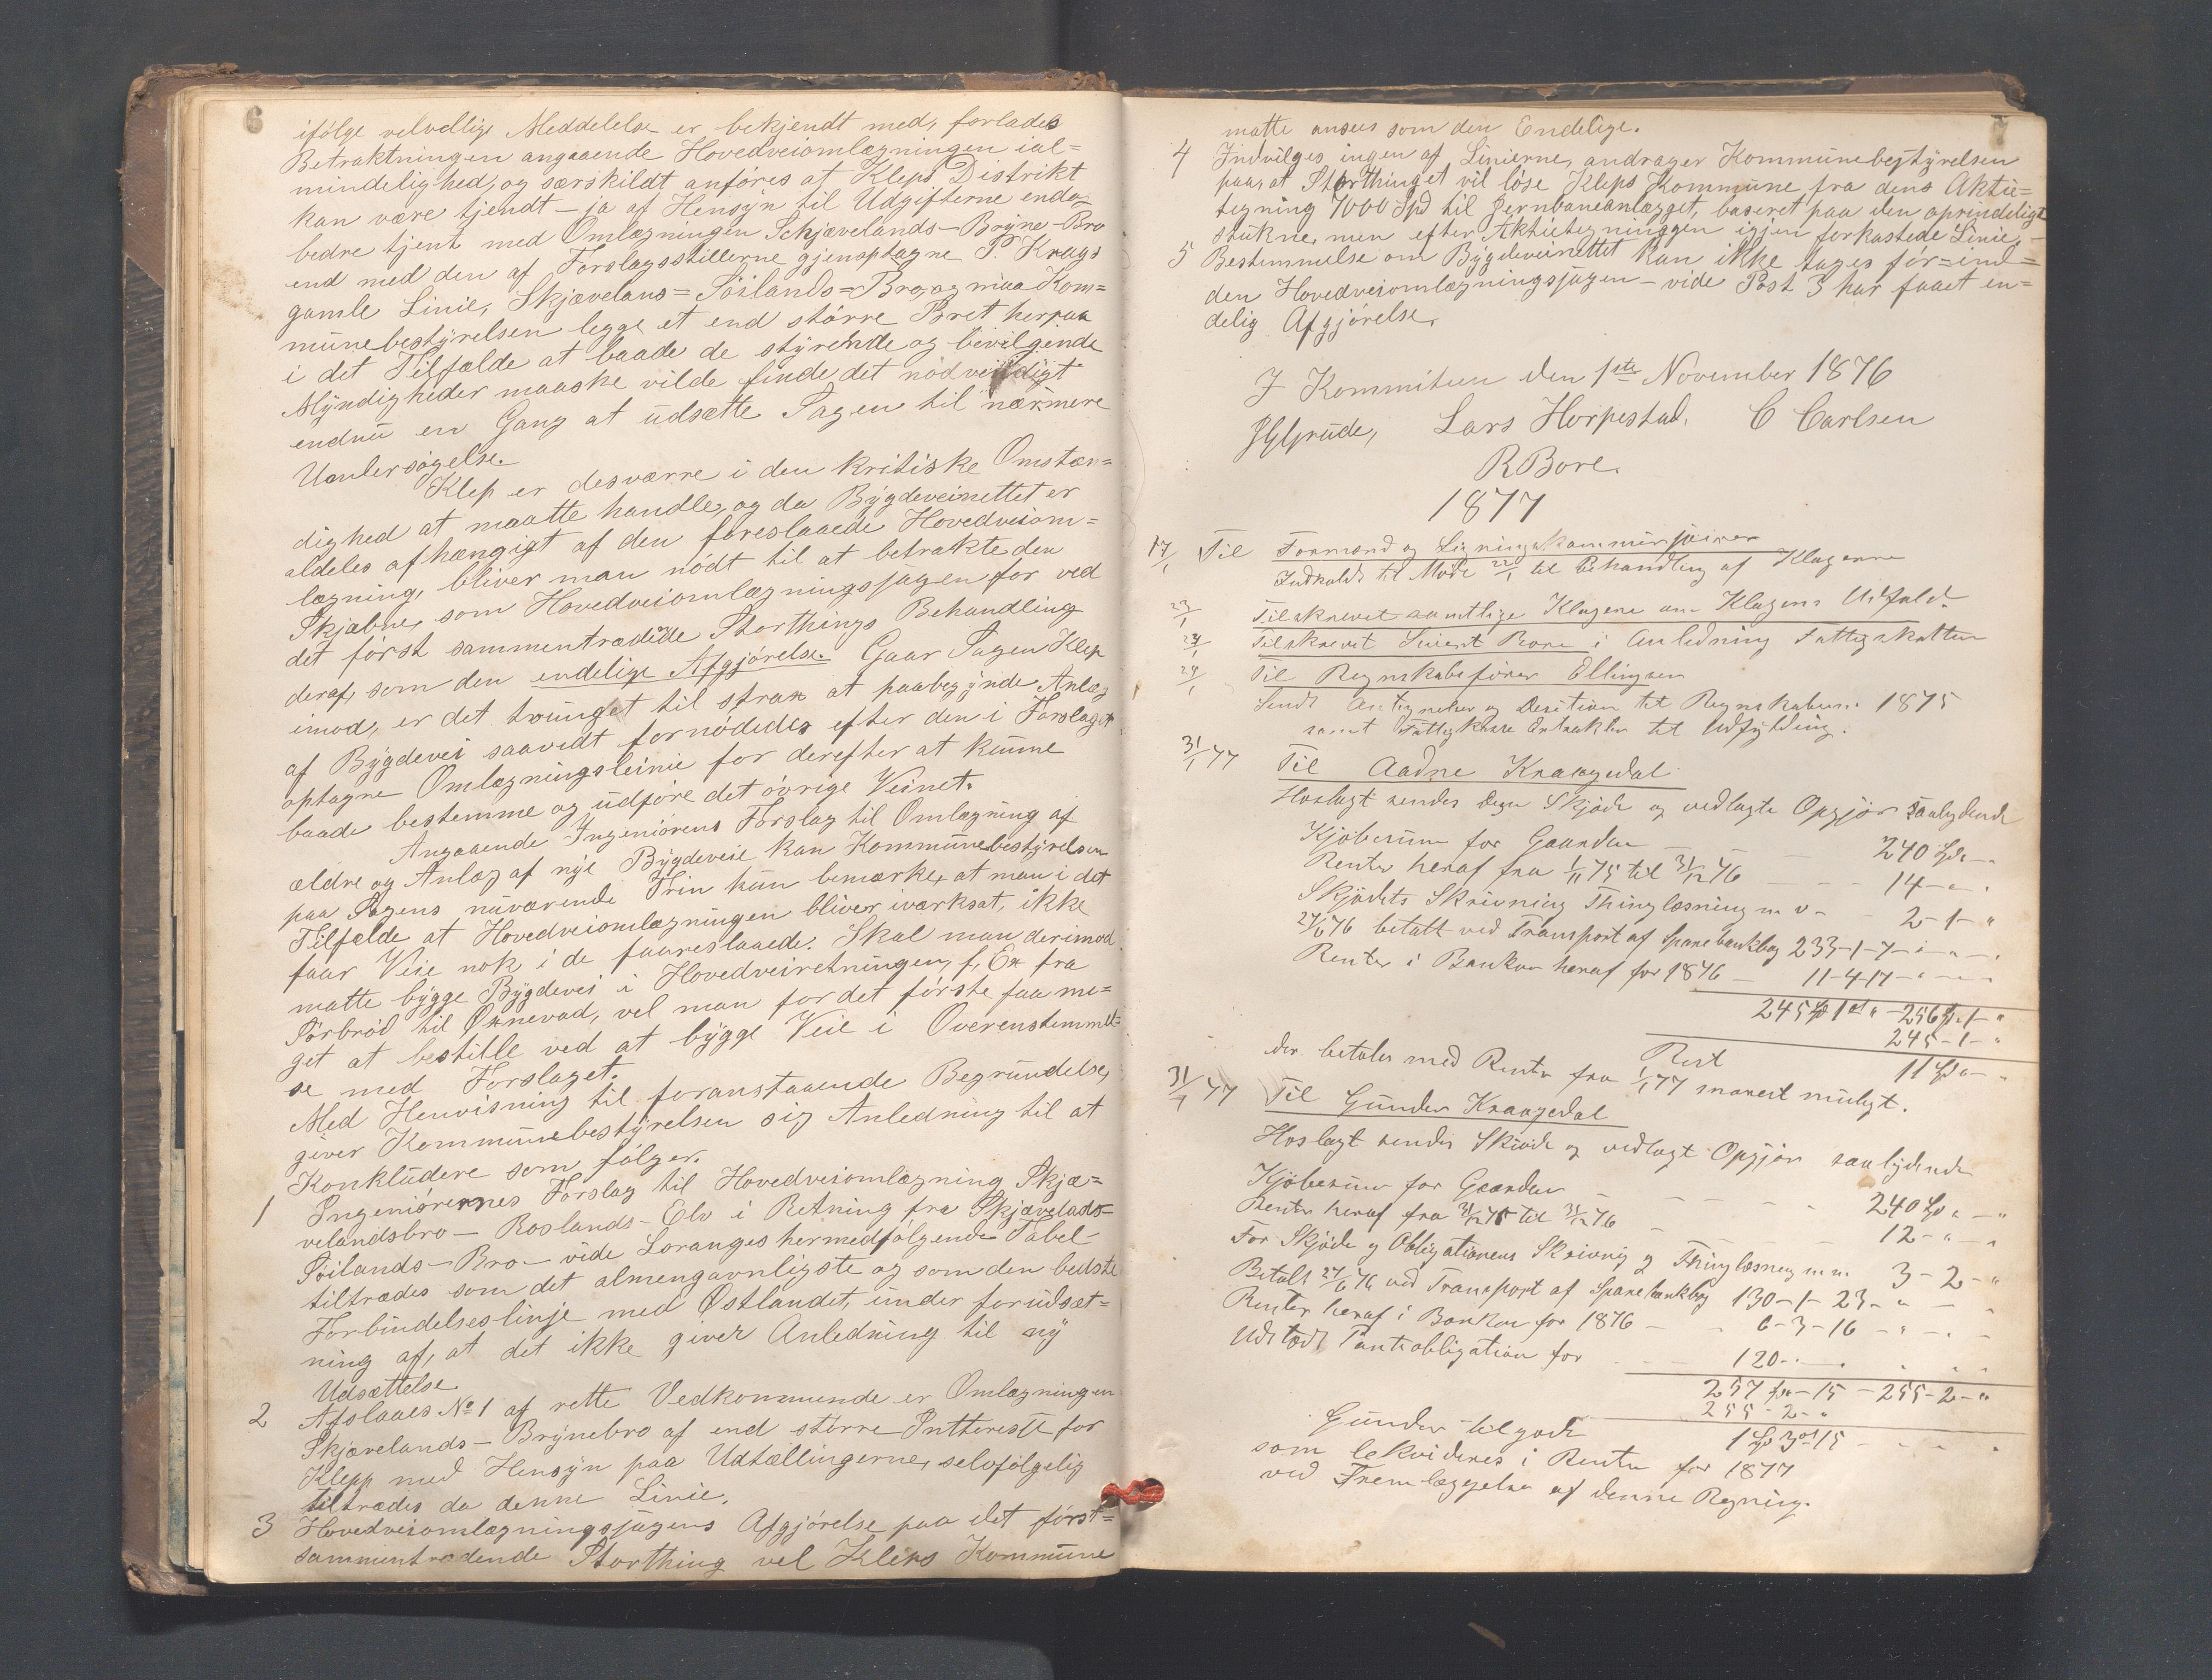 6
ifölge velvellige Meddelelse er bekjendt med, forlades
Betraktningen angaaende Hovedveiomlægningen ial=
mindelighed, og særskildt anföres at Kleps Distrikt
kan være tjendt – ja af Hensyn til Udgifterne endog
bedre tjent med Omlægningen Schjævelands – Bryne – Bro
end med den af Forslagsstillerne gjenoptagne P. Krags
gamle Linie, Skjævelans = Söilands = Bro, og maa Kom=
munebestyrelsen legge et end större Bret herpaa
i det Tilfælde at baade de styrende og bevilgende
Myndigheder maaske vilde finde det nödvendigt
endnu en Gang at udsætte Sagen til nærmere
Undersögelse.
Klep er desværre i den kritiske Omstæn=
dighed at maatte handle, og da Bygdeveinettet er
aldeles afhængigt af den foreslaaede Hovedveiom=
lægning, bliver man nödt til at betrakte den
Skjæbne, som Hovedveiomlægningssagen for ved
det först sammentrædede Storthings Behandling
deraf, som den endelige Afgjörelse. Gaar Sagen Klep
imod, er det tvunget til strax at paabegynde Anlæg
af Bygdevei saavidt fornödedes efter den i Forslaget
optagne Omlægningsleinie for derefter at kunne
baade bestemme og udföre det övrige Veinet.
Angaaende Ingeniörens Forslag til Omlægning af
ældre og Anlæg af nye Bygdeveie kan Kommunebestyrelsen
paa Sagens nuværende Trin kun bemærke, at man i det
Tilfælde at Hovedveiomlægningen bliver iværksat, ikke
faar Veie nok i de faareslaaede. Skal man derimod
matte bygge Bygdevei i Hovedveiretningen, f. Ex fra
Sörbröd til Öxnevad, vel man for det förste faa me=
get at bestille ved at bygge Veie i Overenstemmel=
se med Forslaget.
Med Henvisning til foranstaaende Begrundelse,
giver Kommunebestyrelsen sig Anledning til at
Konkludere som fölger.
1 Ingeniörernes Forslag til Hovedveiomlægning Skjæ=
velandsbro – Roslands – Elv i Retning fra Skjævelads=
Söilands – Bro – vide Loranges hermedfölgende Tabel –
tiltrædes som det almengavnligste og som den bedste
Forbindelseslinje med Østlandet, under forudsæt=
ning af, at det ikke giver Anledning til ny
Udsættelse
2 Afslaaes No 1 af rette Vedkommende er Omlægningen
Skjævelands – Brynebro af end större Intteresse for
Klepp med Hensyn paa Udtællingerne, selvfölgelig
tiltrædes da denne Linie.
3 Hovedveiomlægningssagens Afgjörelse paa det först=
sammentrædende Storthing vel Kleps Kommune
7
matte ansees som den Endelige.
4 Indvilges ingen af Linierne, andrager Kommunebestyrelsen
paa, at Storthinget vil löse Kleps Kommune fra dens Aktie=
tegning 7000 Spd til Jernbaneanlægget, baseret paa den oprindeligt
stukne, men efter Aktietegninggen igjen forkastede Linie. –
5 Bestemmelse om Bygdeveinettet kan ikke tages för = end =
den Hovedveiomlægningssagen – vide Post 3 har faaet en=
delig Afgjörelse.
I Kommiteen den 1ste November 1876
Lars Horpestad. C Carlsen
R Bore.
1877
17/1 Til Formænd og Ligningskommissairer
Indkaldt til Møde 22/1 til Behandling af Klagerne
23/1 Tilskrevet samtlige Klagere om Klagens Udfald.
24/1 Tilskrevet Bore i Anledning Fattigskatten
24/1 Til Regnskabsförer Ellingsen
Sendt Antegnelser og Desition til Regnskabern 1875
samt Fattigkasse Extrakter til Udfylding.
31/1 77 Til Aadne Kraagedal
Hoslagt sendes Deres Skjöde og vedlagte Opgjör saalydende
Kjöbesum for Gaarden – – 240 Spd – „
Renter heraf fra 1/11 75 til 31/12 76 – – – 14 – „ – „
Skjödets Skrivning Thinglæsning m v – – 2 – 1 – „
27/6 76 betalt ved Transport af Sparebankbog 233 – 1 – 7 – „ – „
Renter i Banken heraf for 1876 – 11 – 4 – 17 – „ – „
245 Spd 1 ort „ – 256 Spd 1 – „
245 – 1 – „
Rest 11 Spd „ – „
der betales med Renter fra 1/1 77 snarest muligt.
31/1 77 Til Gunder Kraagedal
Hoslagt sendes Skiöde og vedlagt Opgjör saalydende
Kjöbesum for Gaarden – – – – 240 Spd „ – „
Renter heraf fra 31/12 75 til 31/12 76 – – 12 – „ – „
For Skjöde og Obligationens Skrivnig og Thinglæsning m.m. 3 – 2 – „
Betalt 27/6 76 ved Transport af Sparebankbog 130 – 1 – 23 – „ – „
Renter heraf i Banken for 1876 – – 6 – 3 – 16 – „ – „
Udstædt Pantobligation for – – 120 – „ – „
257 Spd – 15 – 255 – 2 – „
255 – 2 – „
Gunder tilgode 1 Spd 3 ort 15 – –
som lekvideres i Renter for 1877
ved Fremlæggelse af denne Regning.